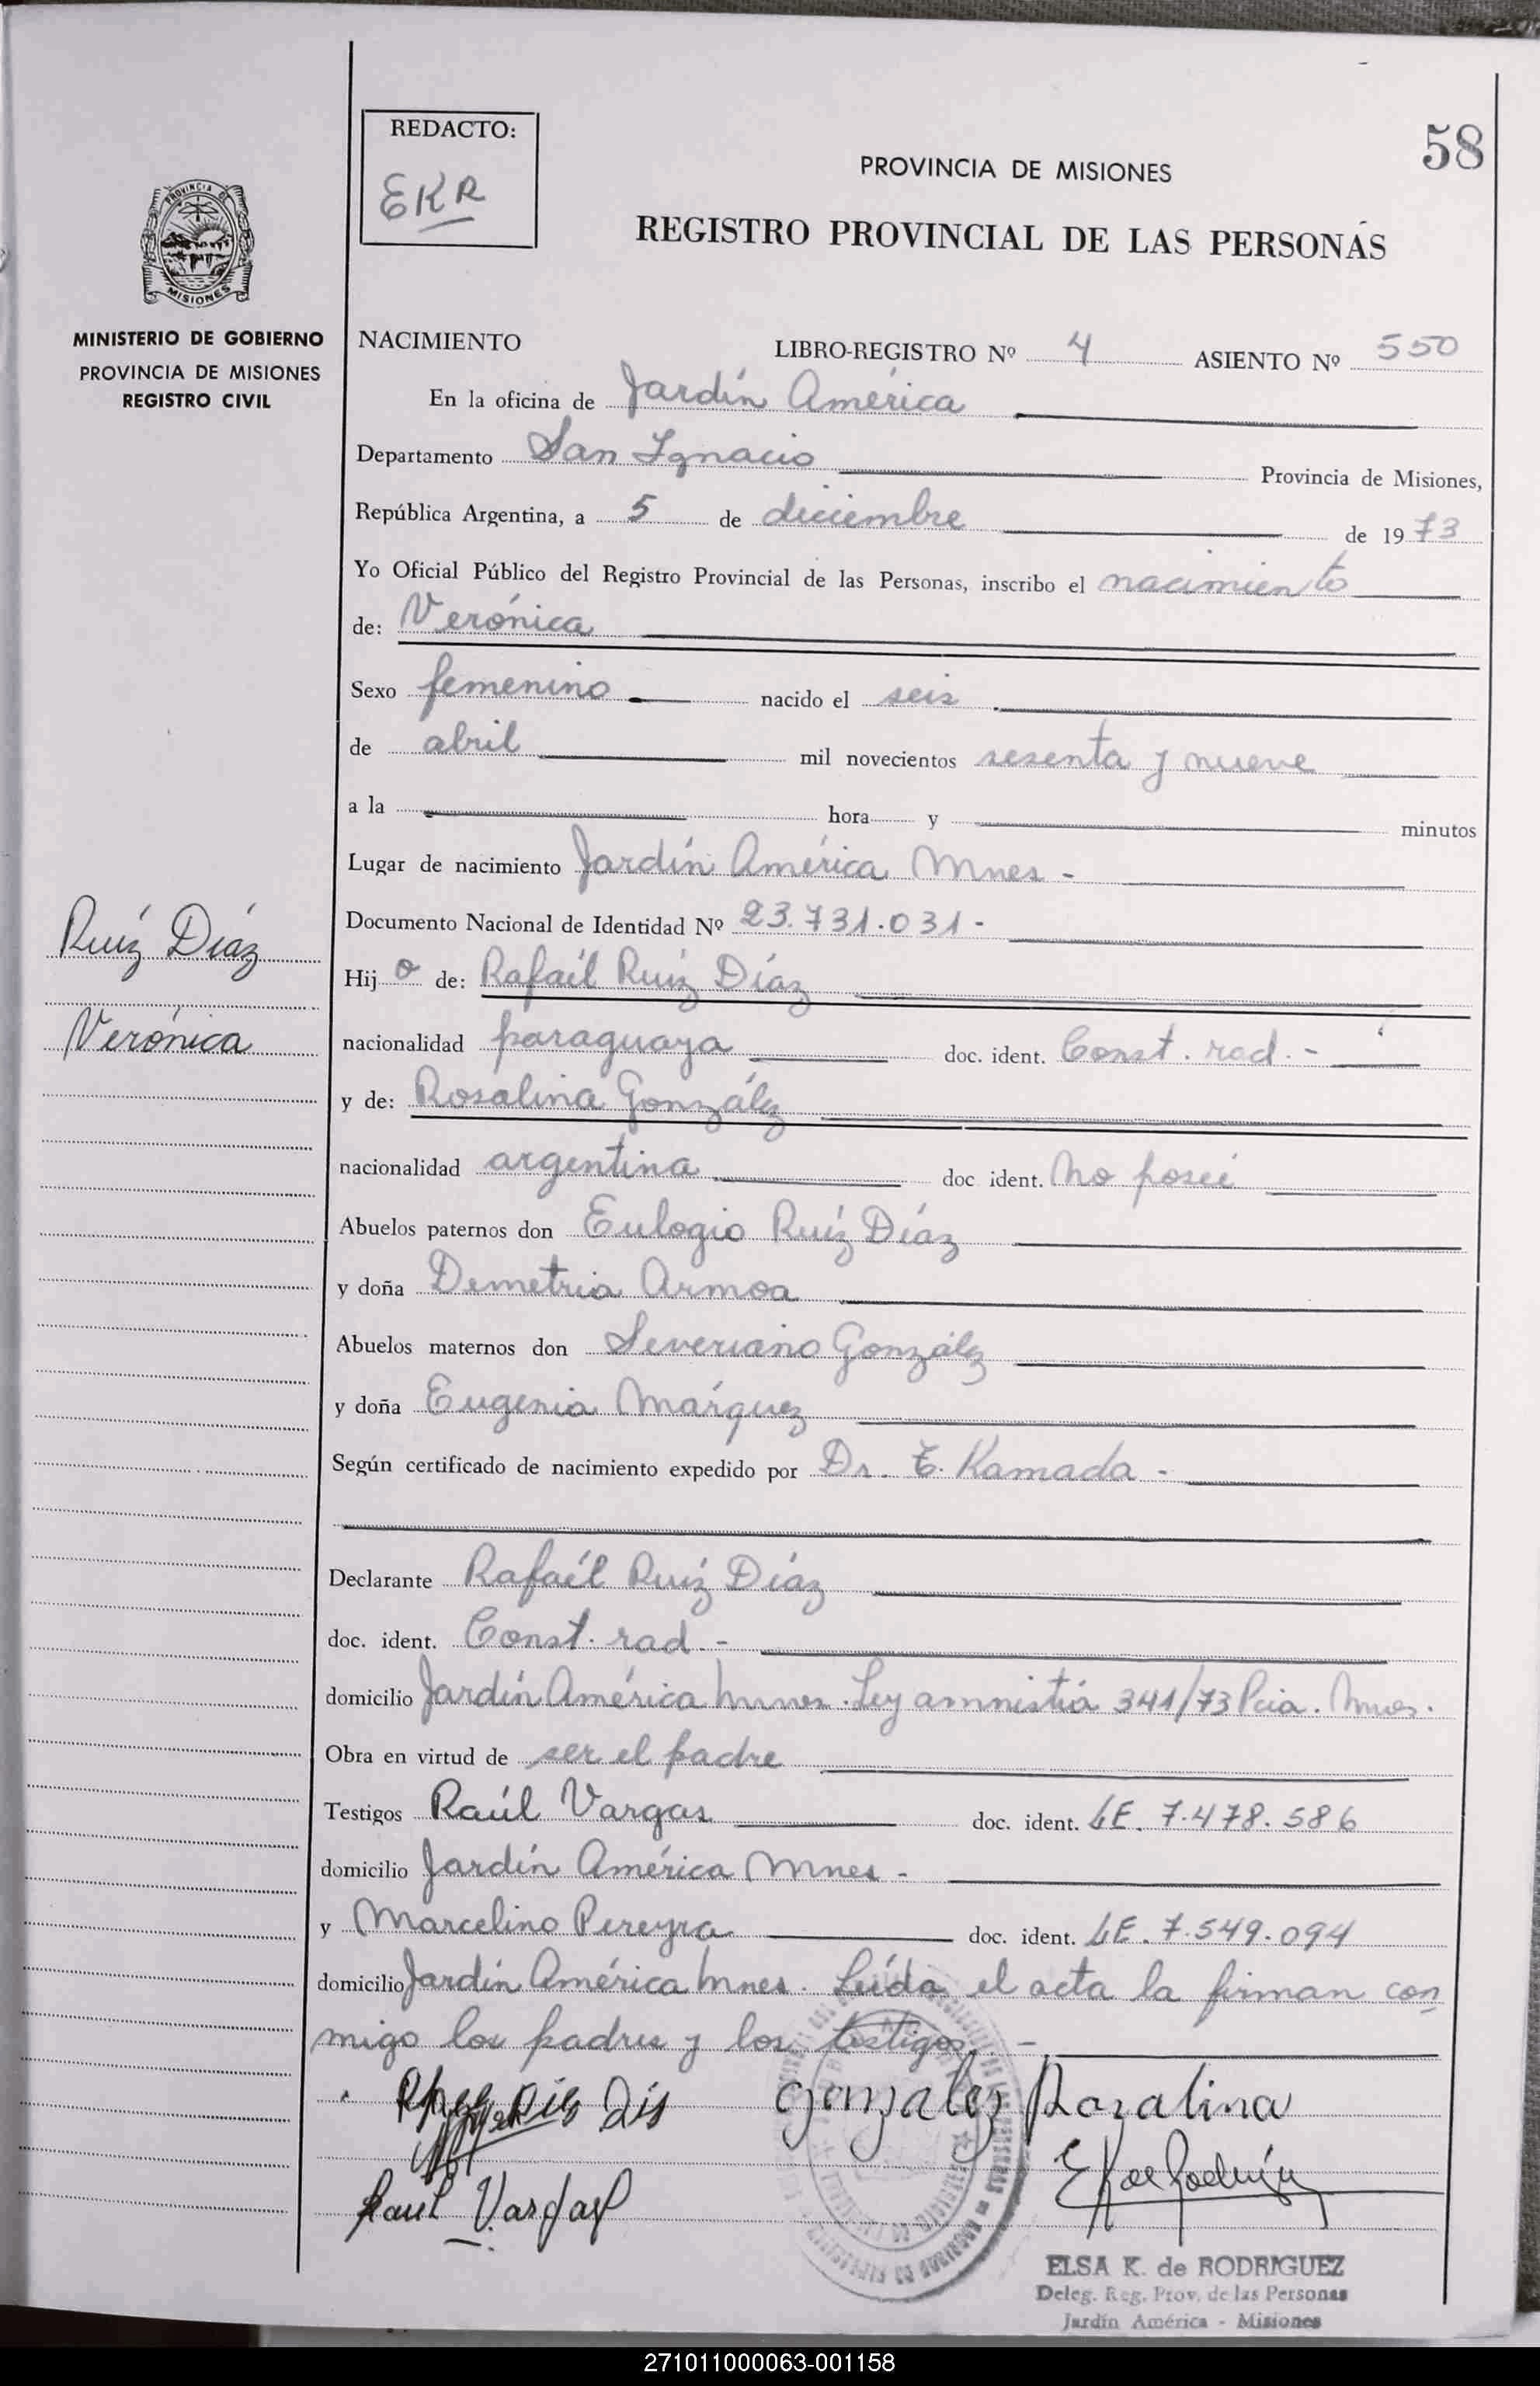 58
REDACTO:
EKR
PROVINCIA DE MISIONES
REGISTRO PROVINCIAL DE LAS PERSONAS
PROVINCIA DE
MISIONES
MINISTERIO DE GOBIERNO
PROVINCIA DE MISIONES
REGISTRO CIVIL
NACIMIENTO LIBRO-REGISTRO Nº 4 ASIENTO Nº 550
En la oficina de Jardín América
Departamento San Ignacio Provincia de Misiones,
República Argentina, a 5 de diciembre de 1973
Yo Oficial Público del Registro Provincial de las Personas, inscribo el nacimiento
de: Verónica
Sexo femenino nacido el seis
de abril mil novecientos sesenta y nueve
a la hora y minutos
Lugar de nacimiento Jardín América Mnes -
Documento Nacional de Identidad Nº 23.731.031-
Ruíz Díaz
Verónica
Hij a de: Rafaél Ruíz Díaz
nacionalidad paraguaya doc. ident. Const. rad. -
y de: Rosalina Gonzálz
nacionalidad argentina doc ident. No poseé
Abuelos paternos don Eulogio Ruíz Díaz
y doña Demetria Armoa
Abuelos maternos don Severiano Gonzálz
y doña Eugenia Márquez
Según certificado de nacimiento expedido por Dr. T. Kamada -
Declarante Rafaél Ruíz Díaz
doc. ident. Const. rad. -
domicilio Jardín América Mnes. Ley amnistía 341/73 Pcia. Mnes.
Obra en virtud de ser el padre
Testigos Raúl Vargas doc. ident. LE. 7.478.586
domicilio Jardín América Mnes -
y Marcelino Pereyra doc. ident. LE. 7.549.094
domicilio Jardín América Mnes. Leída el acta la firman con
migo los padres y los testigos. -
Gonzalez Rozalina
Raul Vargas
ELSA K. de RODRIGUEZ
Deleg. Reg. Prov. de las Personas
Jardín América - Misiones
271011000063-001158